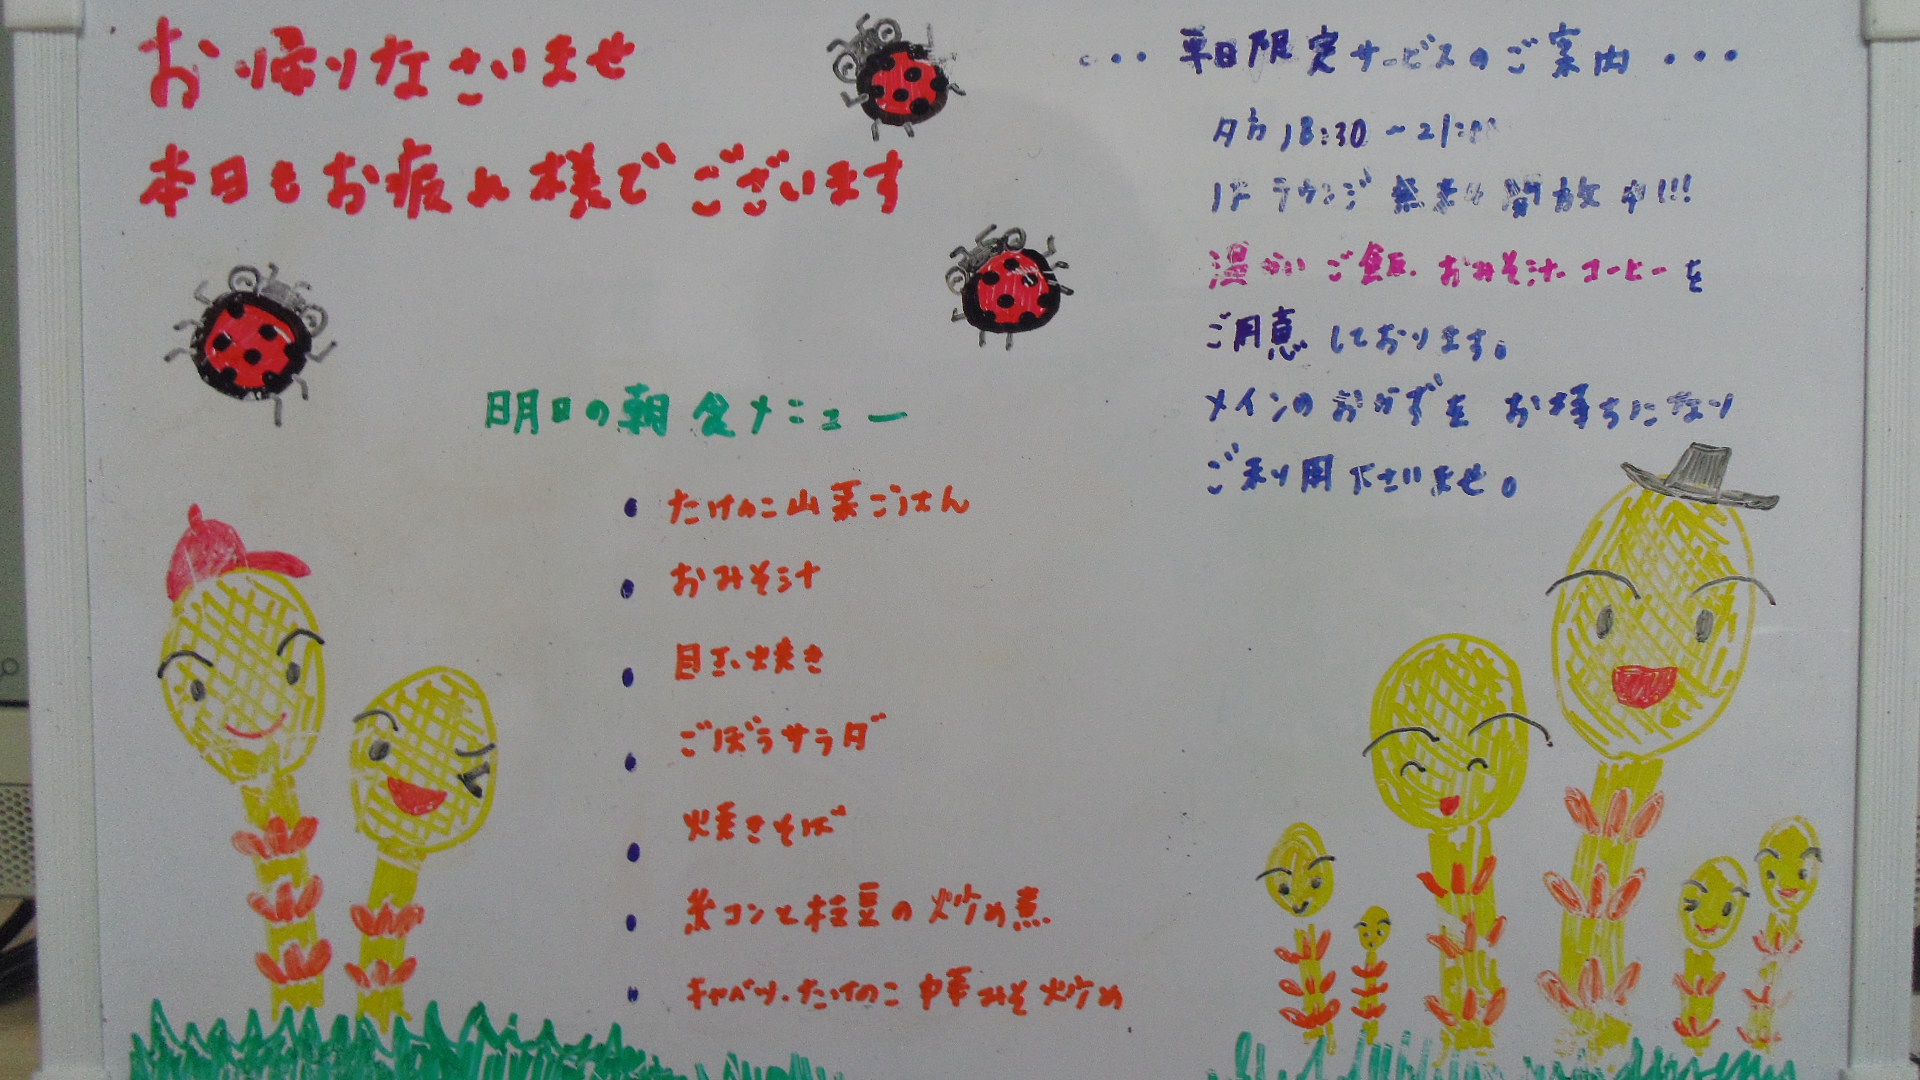 お帰りなさいませ
本日もお疲れ様でございます
明日の朝食メニュー
・たけのこ山菜ごはん
・おみそ汁
・目玉焼き
・ごぼうサラダ
・焼きそば
・糸コンと枝豆の炒め煮
・キャベツ・たけのこ中華みそ炒め
・・・平日限定サービスのご案内・・・
夕方18:30～21:00
1Fラウンジ無料開放中!!!
温かいご飯、おみそ汁、コーヒーを
ご用意しております。
メインのおかずをお持ちになり
ご利用下さいませ。